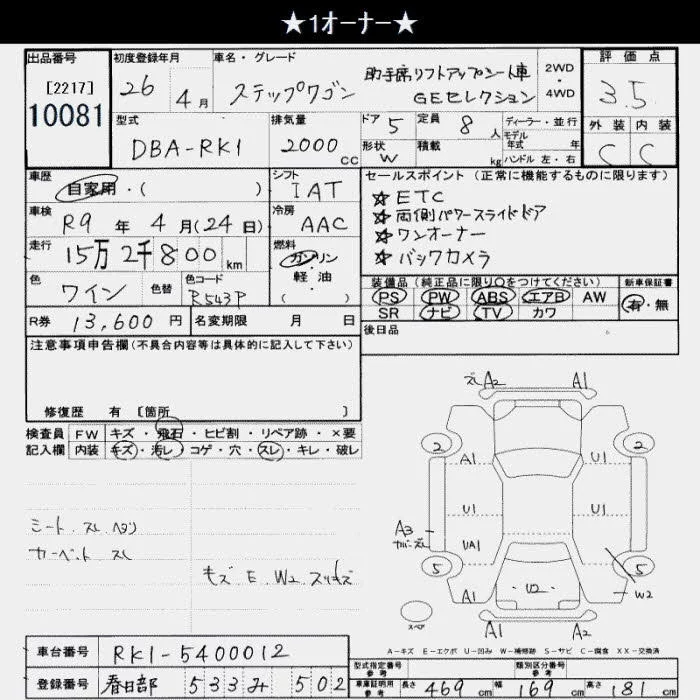 ★1オーナー★
出品番号
[2217]
10081
初度登録年月
26 4月
車名・グレード
ステップワゴン
助手席リフトアップシート車
GEセレクション
2WD
・
4WD
評価点
3.5
外装 内装
C C
型式
DBA-RK1
排気量
2000 CC
ドア 5
定員 8 人
形状 W
積載 kg
ディーラー・並行
モデル
年式 年
ハンドル 左・右
車歴
自家用・( )
シフト
IAT
車検
R9 年 4 月(24日)
冷房
AAC
走行
15万2千800 km
燃料
ガソリン
・
軽油
( )
色
ワイン
色替
色コード
R543P
R券 13,600円
名変期限 月 日
セールスポイント(正常に機能するものに限ります)
☆ETC
☆両側パワースライドドア
☆ワンオーナー
☆バックカメラ
装備品(純正品に限り○をつけてください)
PS PW ABS エアB AW
SR ナビ TV カワ
新車保証書
有・無
後日品
注意事項申告欄(不具合内容等は具体的に記入して下さい)
修復歴 有 [箇所 ]
検査員
記入欄
FW キズ・飛石・ヒビ割・リペア跡・×要
内装 キズ・汚レ・コゲ・穴・スレ・キレ・破レ
シート スレ ヘタリ
カーペット スレ
キズ E W2 スリキズ
ズレ A2 A1
2 2
A1 U1
U1 U1
A3
カバーズレ
UA1
5 5
U2
W2
A1
U1 A2
スペア
A-キズ E-エクボ U-凹み W-補修跡 S-サビ C-腐食 XX-交換済
車台番号 RK1-5400012
登録番号 春日部 533み 502
型式指定番号
参考
類別区分番号
参考
車庫証明用
参考
長さ 469 cm 幅 169 cm 高さ 181 cm